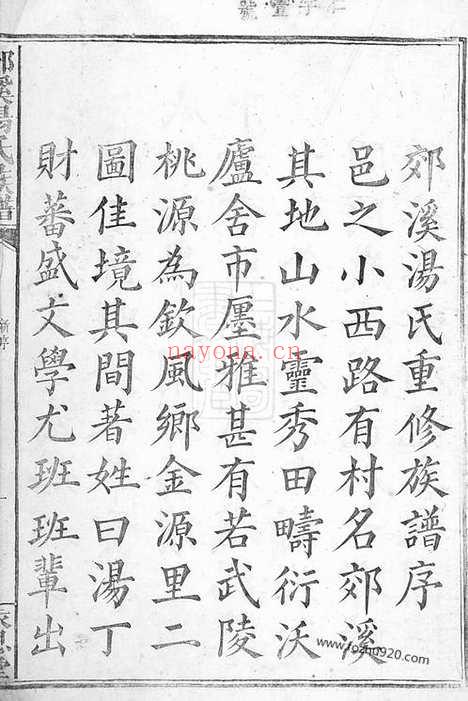 郊溪湯氏重修族譜序
邑之小西路有村名郊溪
其地山水靈秀田疇衍沃
廬舍市廛雅甚有若武陵
桃源為欽風鄉金源里二
圖佳境其間著姓曰湯丁
財蕃盛文學尤班班輩出
郊溪湯氏族譜
新序
nayona.cn
www.fozhu920.com